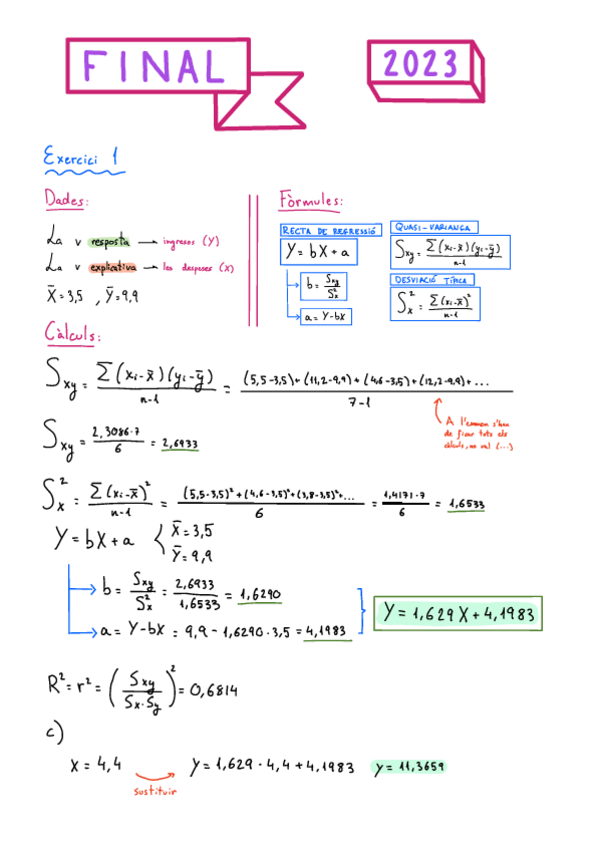 FINAL 2023
Exercici 1
Dades:
La v resposta → ingresos (Y)
La v explicativa → les despeses (X)
X̄ = 3,5 , Ȳ = 9,9
Fòrmules:
RECTA DE REGRESSIÓ
Y = bX + a
b = Sxy / S²x
a = Y - bX
QUASI-VARIANÇA
Sxy = Σ(xi - x̄)(yi - ȳ) / n-1
DESVIACIÓ TÍPICA
S²x = Σ(xi - x̄)² / n-1
Càlculs:
Sxy = Σ(xi - x̄)(yi - ȳ) / n-1 = (5,5-3,5) + (11,2-9,9) + (4,6-3,5) + (12,2-9,9) + ... / 7-1
A l'examen s'han
de ficar tots els
càlculs, no val (...)
Sxy = 2,3086·7 / 6 = 2,6933
S²x = Σ(xi - x̄)² / n-1 = (5,5-3,5)² + (4,6-3,5)² + (3,8-3,5)² + ... / 6 = 1,4171·7 / 6 = 1,6533
Y = bX + a
X̄ = 3,5
Ȳ = 9,9
b = Sxy / S²x = 2,6933 / 1,6533 = 1,6290
a = Y - bX = 9,9 - 1,6290 · 3,5 = 4,1983
Y = 1,629 X + 4,1983
R² = r² = (Sxy / Sx·Sy)² = 0,6814
c)
X = 4,4
sustituir
Y = 1,629 · 4,4 + 4,1983
y = 11,3659